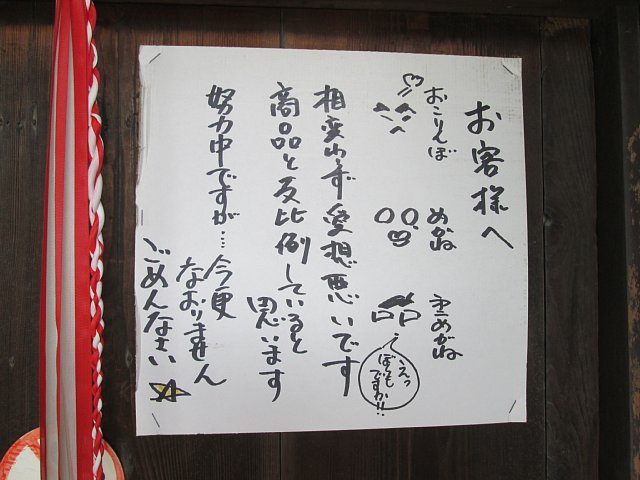 お客様へ
おこりんぼ
めがね
黒めがね
えっ
ぼくも
ですか!!
相変わらず愛想悪いです
商品と反比例していると
思います
努力中ですが…今更
なおりません
ごめんなさい